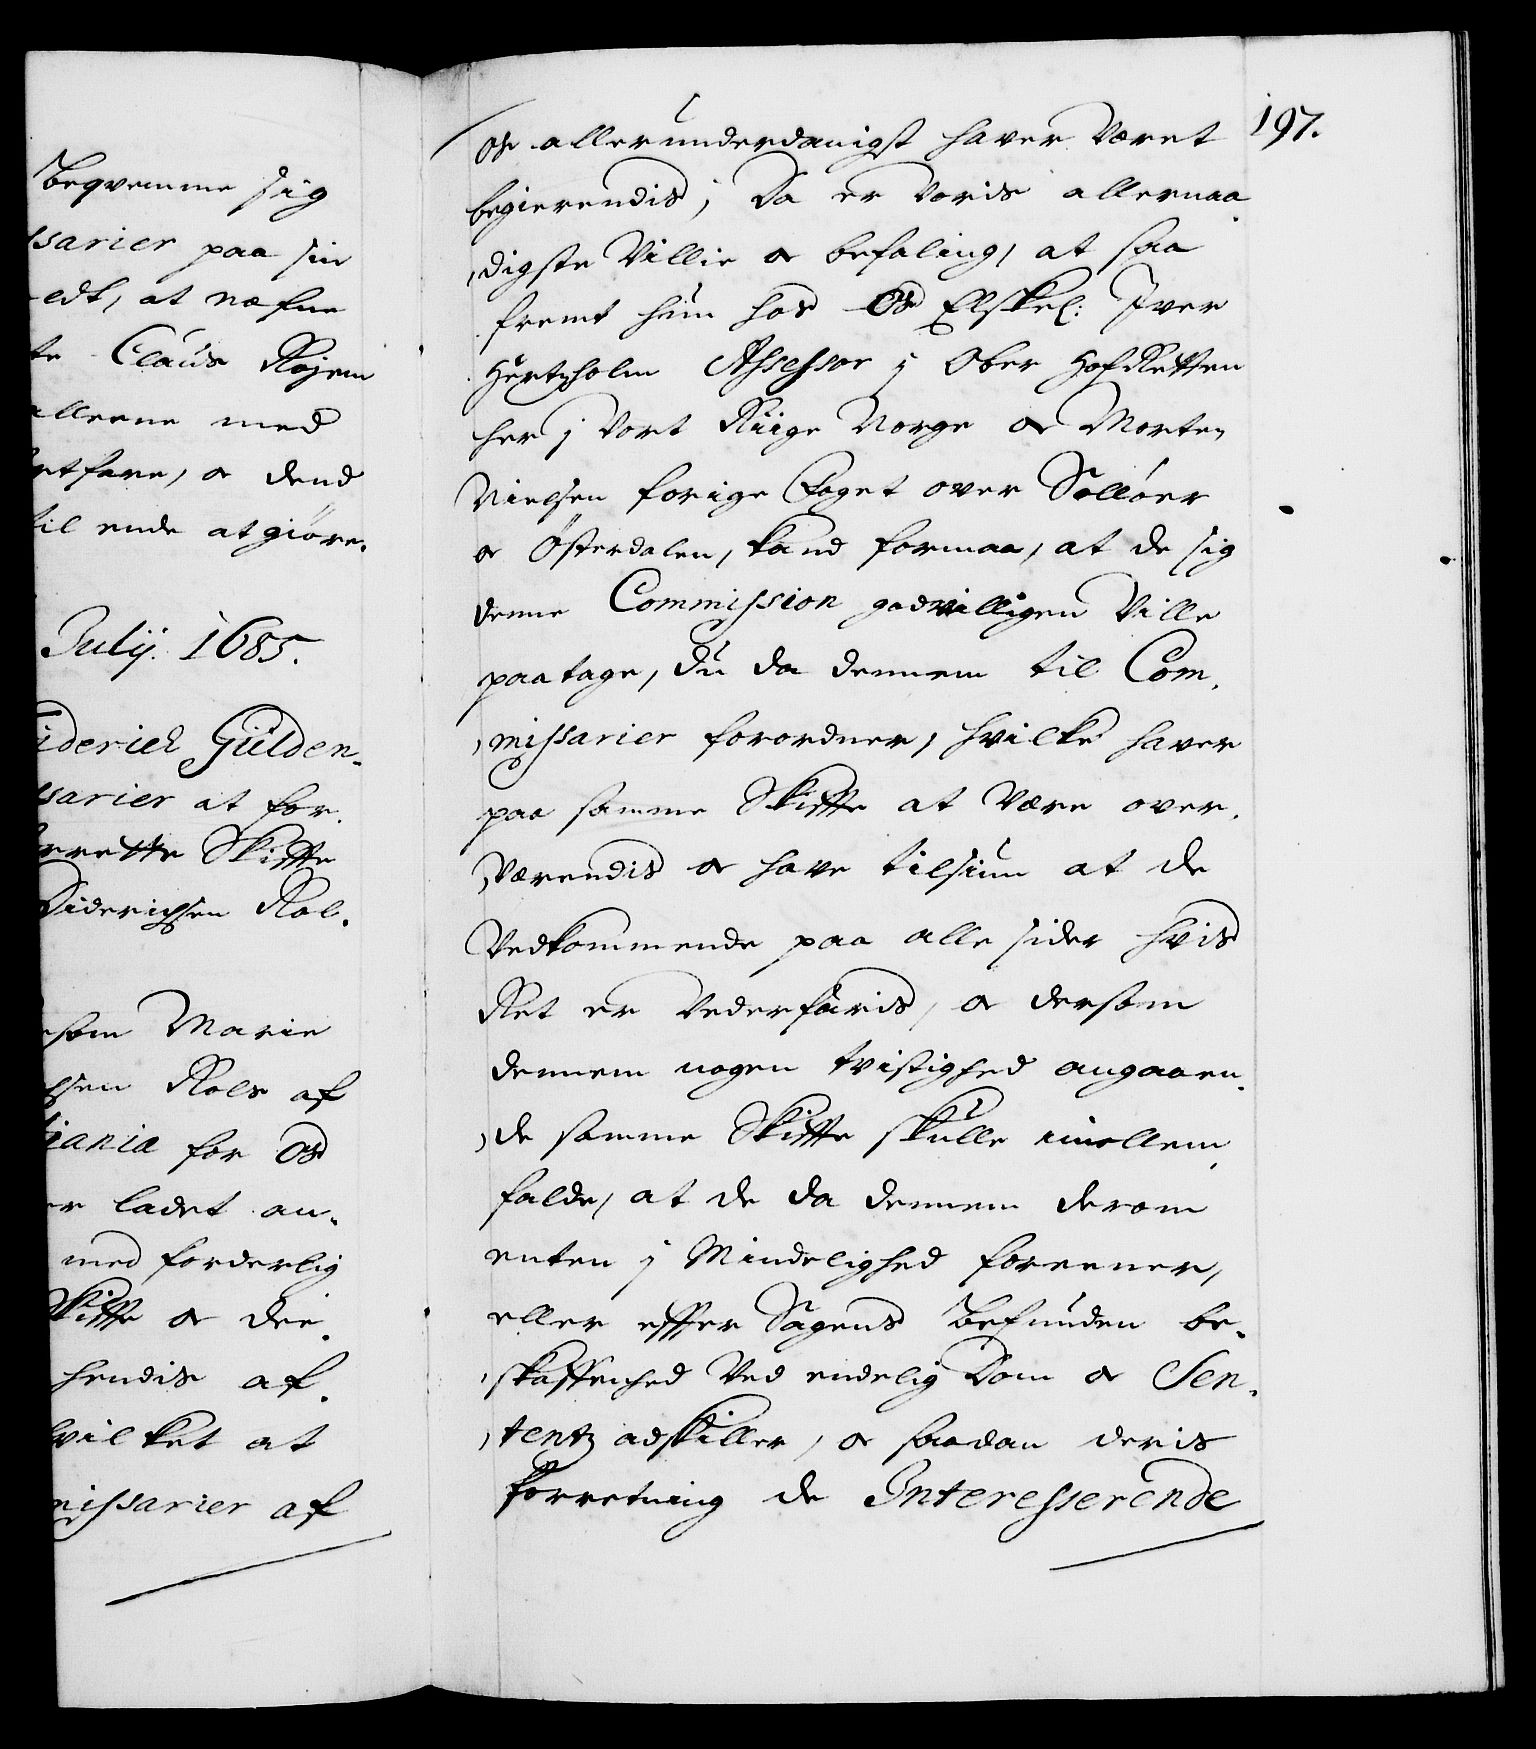 Beqvemme sig
ssarier paa sin
edt, at næfne
te Claus Røyem
allerne med
rtfare, oc dend
til ende at giöre.
Julij. 1685.
iderich Gülden-
sarier at for-
rrette Skiffte
Diderichsen Rol-
som Marie
hsen Rols af
tiania for Os
er ladet an-
med forderlig
Skiffte oc dee-
hendis af-
hvilket at
missarier af
197.
Os allerunderdanigst haver været
begierendis; Da er Voris allernaa-
digste Villie oc befaling, at saa
fremt hun hos Os Elskel: Iver
Hertzholm Assessor j Ober HofRetten
her j Vort Riige Norge oc Morten
Nielsen forige Foget over Solløer
oc Österdalen, kand formaa, at de sig
denne Commission godvilligen Ville
paatage, du da dennem til Com-
missarier forordner, hvilke haver
paa samme Skiffte at Være over-
værendis oc have tilsiun at de
Vedkommende paa alle sider hvis
Ret er Vederfaris, oc dersom
dennem nogen tvistighed angaaen-
de samme Skiffte skulle imellem
falde, at de da dennem derom
enten j Mindelighed foreener,
eller effter Sagens Befunden be-
skaffenhed Ved endelig Dom oc Sen-
tentz adskiller, oc saadan deris
forretning de Interesserende